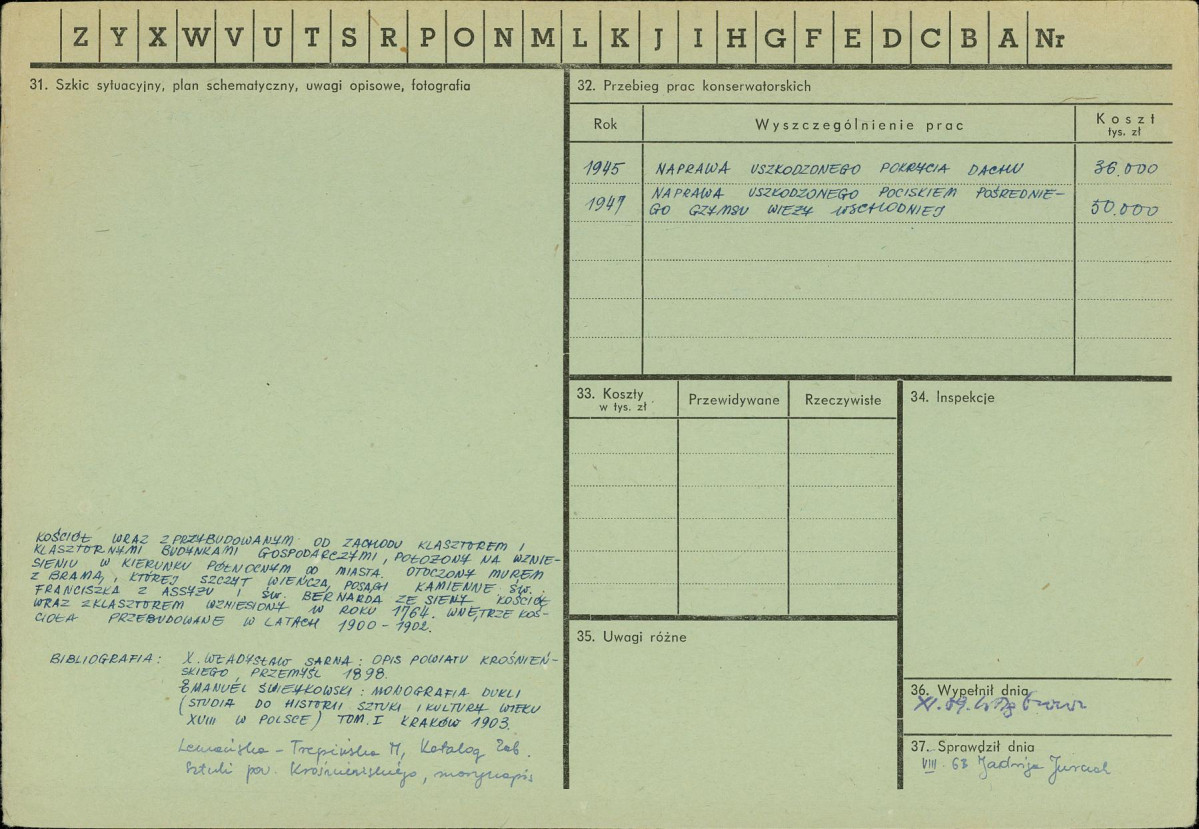 Z Y X W V U T S R P O N M L K J I H G F E D C B A Nr
31. Szkic sytuacyjny, plan schematyczny, uwagi opisowe, fotografia
KOŚCIÓŁ WRAZ Z PRZYBUDOWANYM OD ZACHODU KLASZTOREM I
KLASZTORNYMI BUDYNKAMI GOSPODARCZYMI, POŁOŻONY NA WZNIE-
SIENIU W KIERUNKU PÓŁNOCNYM OD MIASTA. OTOCZONY MUREM
Z BRAMĄ, KTÓREJ SZCZYT WIEŃCZĄ POSĄGI KAMIENNE ŚW.
FRANCISZKA Z ASSYŻU I ŚW. BERNARDA ZE SIENY. KOŚCIÓŁ
WRAZ Z KLASZTOREM WZNIESIONY W ROKU 1764. WNĘTRZE KOŚ-
CIOŁA PRZEBUDOWANE W LATACH 1900-1902.
BIBLIOGRAFIA: X. WŁADYSŁAW SARNA: OPIS POWIATU KROŚNIEŃ-
SKIEGO, PRZEMYŚL 1898.
EMANUEL ŚWIEYKOWSKI: MONOGRAFIA DUKLI
(STUDIA DO HISTORII SZTUKI I KULTURY WIEKU
XVIII W POLSCE) TOM. I KRAKÓW 1903.
Lemańska-Trepińska M, Katalog Zab.
Sztuki pow. Krośnieńskiego, maszynopis
32. Przebieg prac konserwatorskich
Rok Wyszczególnienie prac Koszt tys. zł
1945 NAPRAWA USZKODZONEGO POKRYCIA DACHU 36.000
1947 NAPRAWA USZKODZONEGO POCISKIEM POŚREDNIE-
GO GZYMSU WIEŻY WSCHODNIEJ 50.000
33. Koszty w tys. zł Przewidywane Rzeczywiste
34. Inspekcje
35. Uwagi różne
36. Wypełnił dnia
XI.59.
37. Sprawdził dnia
VIII. 63 Jadwiga